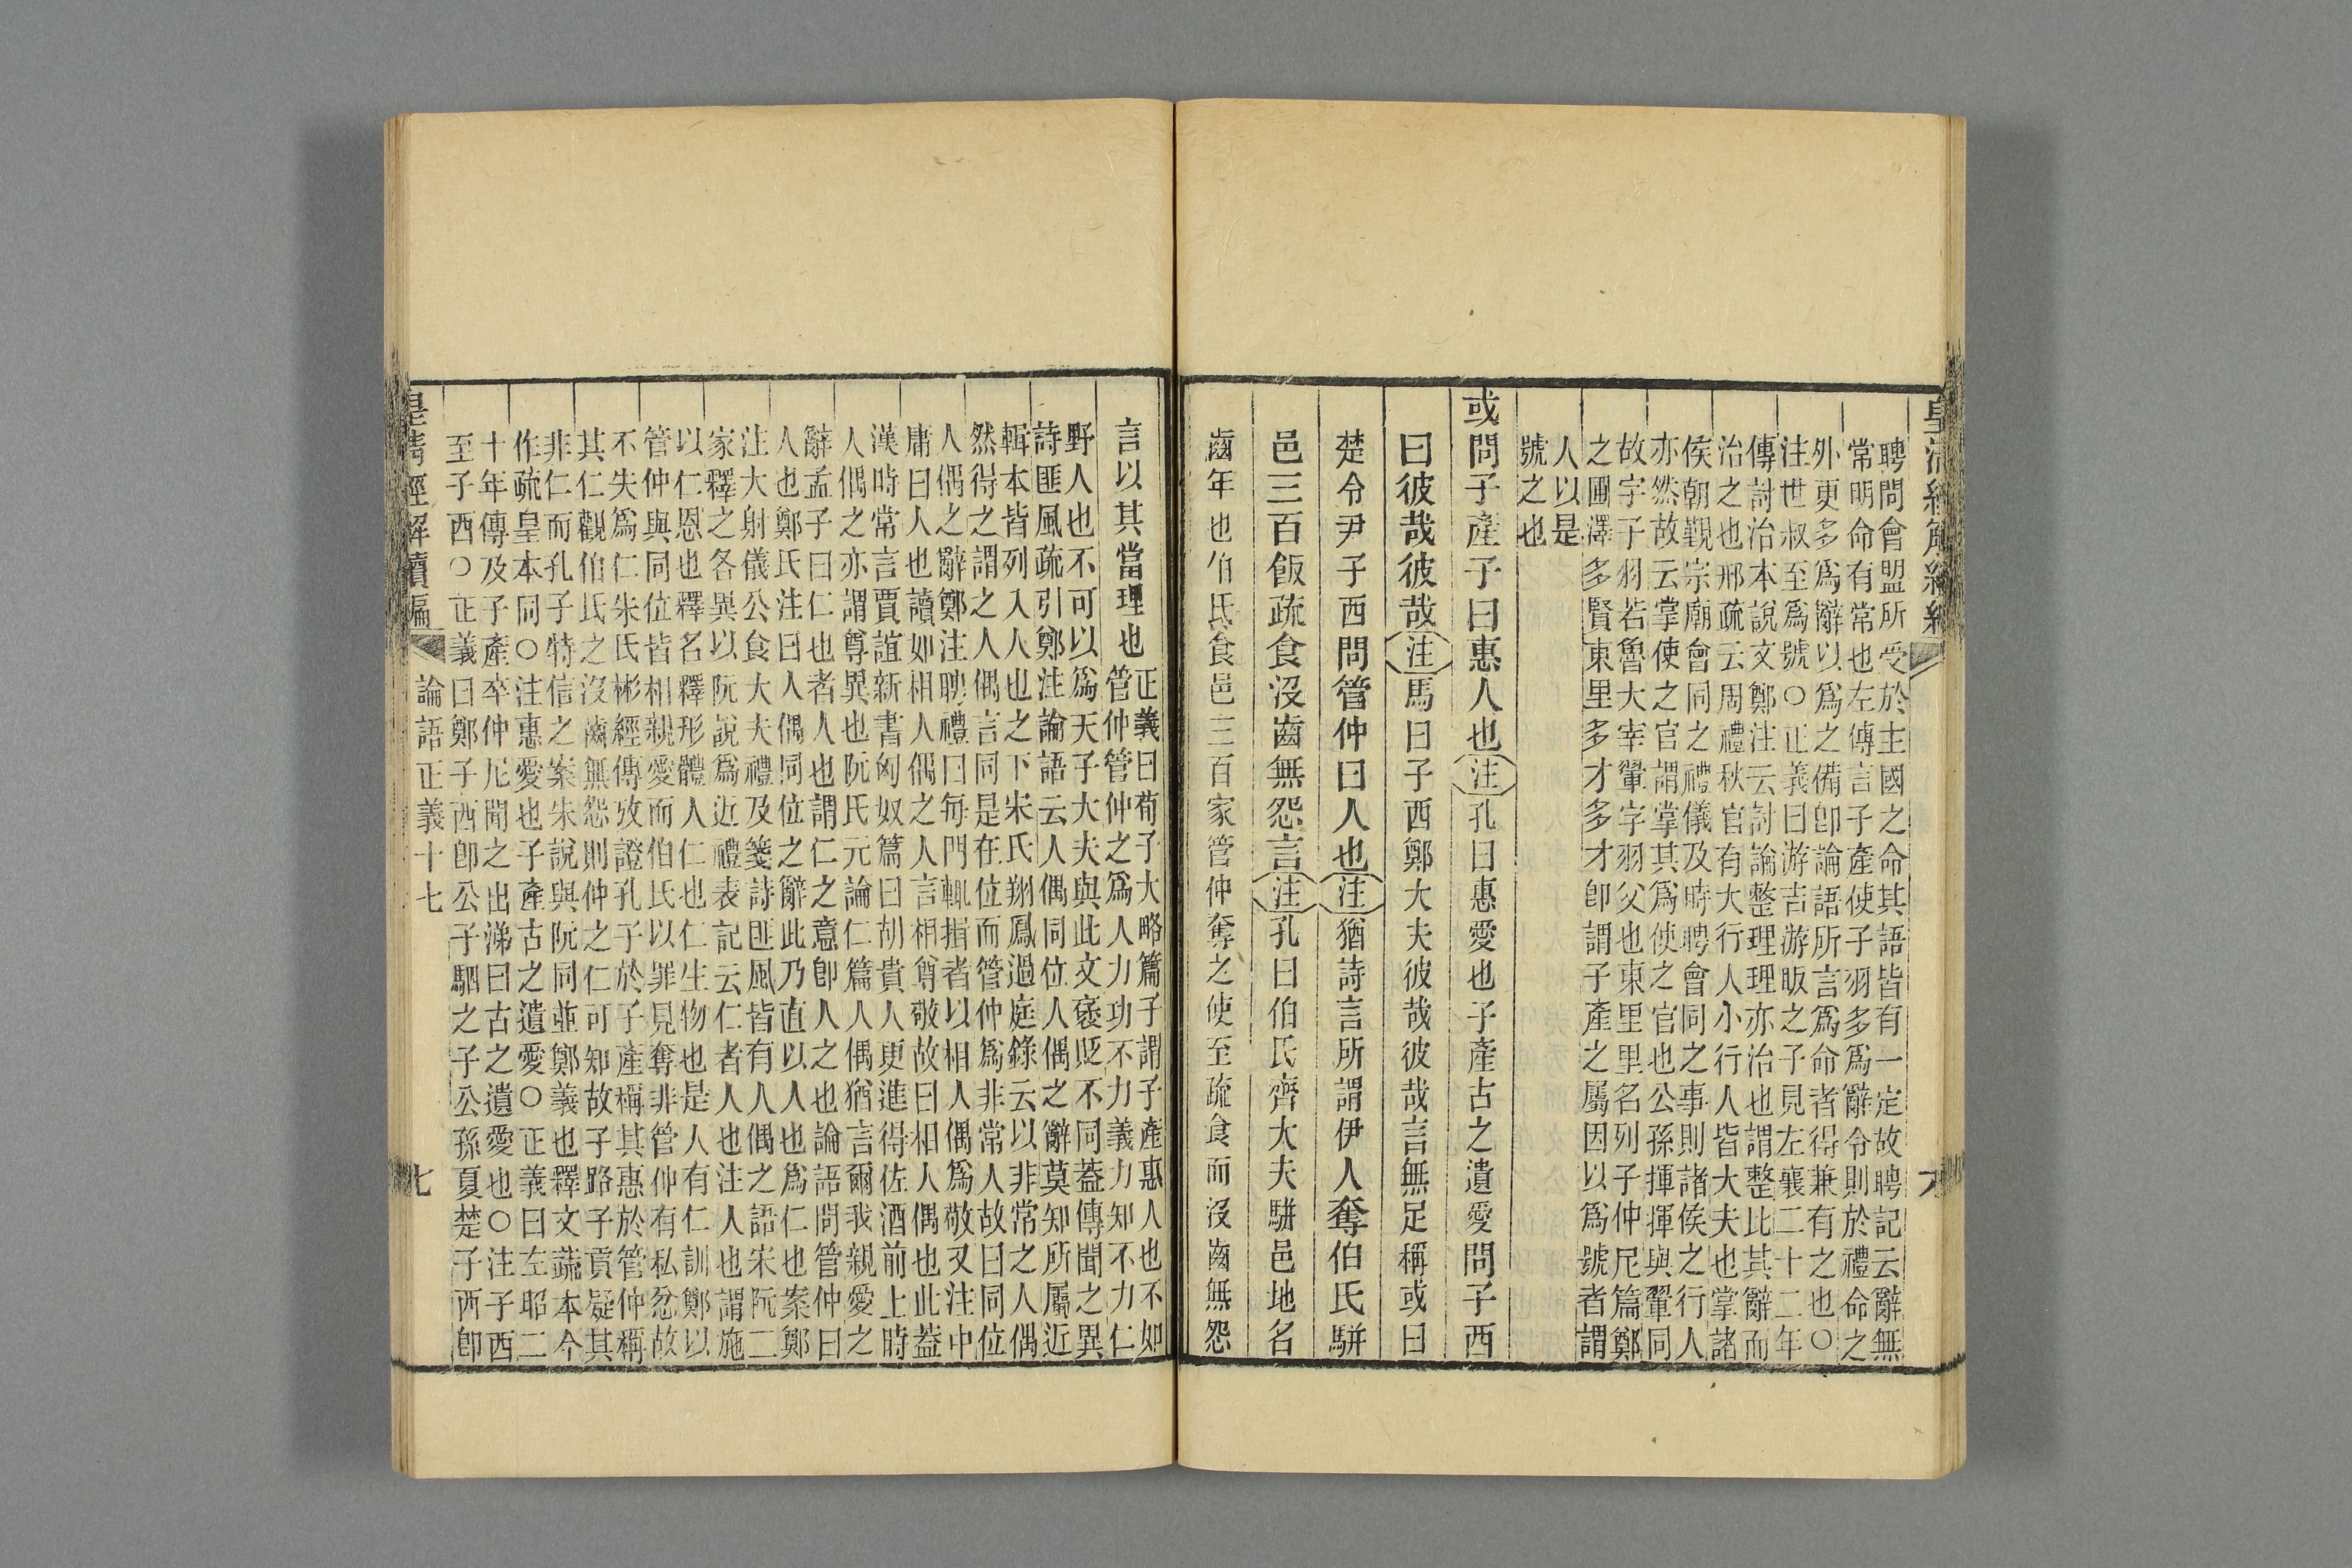 皇清經解續編 六
聘問會盟所受於主國之命其語皆有一定故聘記云辭無
常明命有常也左傳言子產使子羽多爲辭令則於禮命之
外更多爲辭以爲之備卽論語所言爲命者得兼有之也〇
注世叔至爲號〇正義曰游吉游眅之子見左襄二十二年
傳討治本說文鄭注云討論整理理亦治也謂整比其辭而
治之也邢疏云周禮秋官有大行人小行人皆大夫也掌諸
侯朝覲宗廟會同之禮儀及時聘會同之事則諸侯之行人
亦然故云掌使之官謂掌其爲使之官也公孫揮揮與翬同
故字子羽若魯大宰翬字羽父也東里里名列子仲尼篇鄭
之圃澤多賢東里多才多才卽謂子產之屬因以爲號者謂
人以是
號之也
或問子產子曰惠人也注孔曰惠愛也子產古之遺愛問子西
曰彼哉彼哉注馬曰子西鄭大夫彼哉彼哉言無足稱或曰
楚令尹子西問管仲曰人也注猶詩言所謂伊人奪伯氏駢
邑三百飯疏食沒齒無怨言注孔曰伯氏齊大夫駢邑地名
齒年也伯氏食邑三百家管仲奪之使至疏食而沒齒無怨
言以其當理也
正義曰荀子大略篇子謂子產惠人也不如
管仲管仲之爲人力功不力義力知不力仁
野人也不可以爲天子大夫與此文褒貶不同蓋傳聞之異
詩匪風疏引鄭注論語云人偶同位人偶之辭莫知所屬近
輯本皆列入人也之下宋氏翔鳳過庭錄云以非常之人偶
然得之謂之人偶言同是在位而管仲爲非常人故曰同位
人偶之辭鄭注聘禮曰每門輒揖者以相人偶爲敬又注中
庸曰人也讀如相人偶之人言相尊敬故曰相人偶也此蓋
漢時常言賈誼新書匈奴篇曰胡貴人更進得佐酒前上時
人偶之亦謂尊異也阮氏元論仁篇人偶猶言爾我親愛之
辭孟子曰仁也者人也謂仁之意卽人之也論語問管仲曰
人也鄭氏注曰人偶同位之辭此乃直以人也爲仁也案鄭
注大射儀公食大夫禮及箋詩匪風皆有人偶之語宋阮二
家釋之各異以阮說爲近禮表記云仁者人也注人也謂施
以仁恩也釋名釋形體人仁也仁生物也是人有仁訓鄭以
管仲與同位皆相親愛而伯氏以罪見奪非管仲有私忿故
不失爲仁朱氏彬經傳攷證孔子於子產稱其惠於管仲稱
其仁觀伯氏之沒齒無怨則仲之仁可知故子路子貢疑其
非仁而孔子特信之案朱說與阮同並鄭義也釋文蔬本今
作疏皇本同〇注惠愛也子產古之遺愛〇正義曰左昭二
十年傳及子產卒仲尼聞之出涕曰古之遺愛也〇注子西
至子西〇正義曰鄭子西卽公子駟之子公孫夏楚子西卽
皇清經解續編 論語正義十七 七